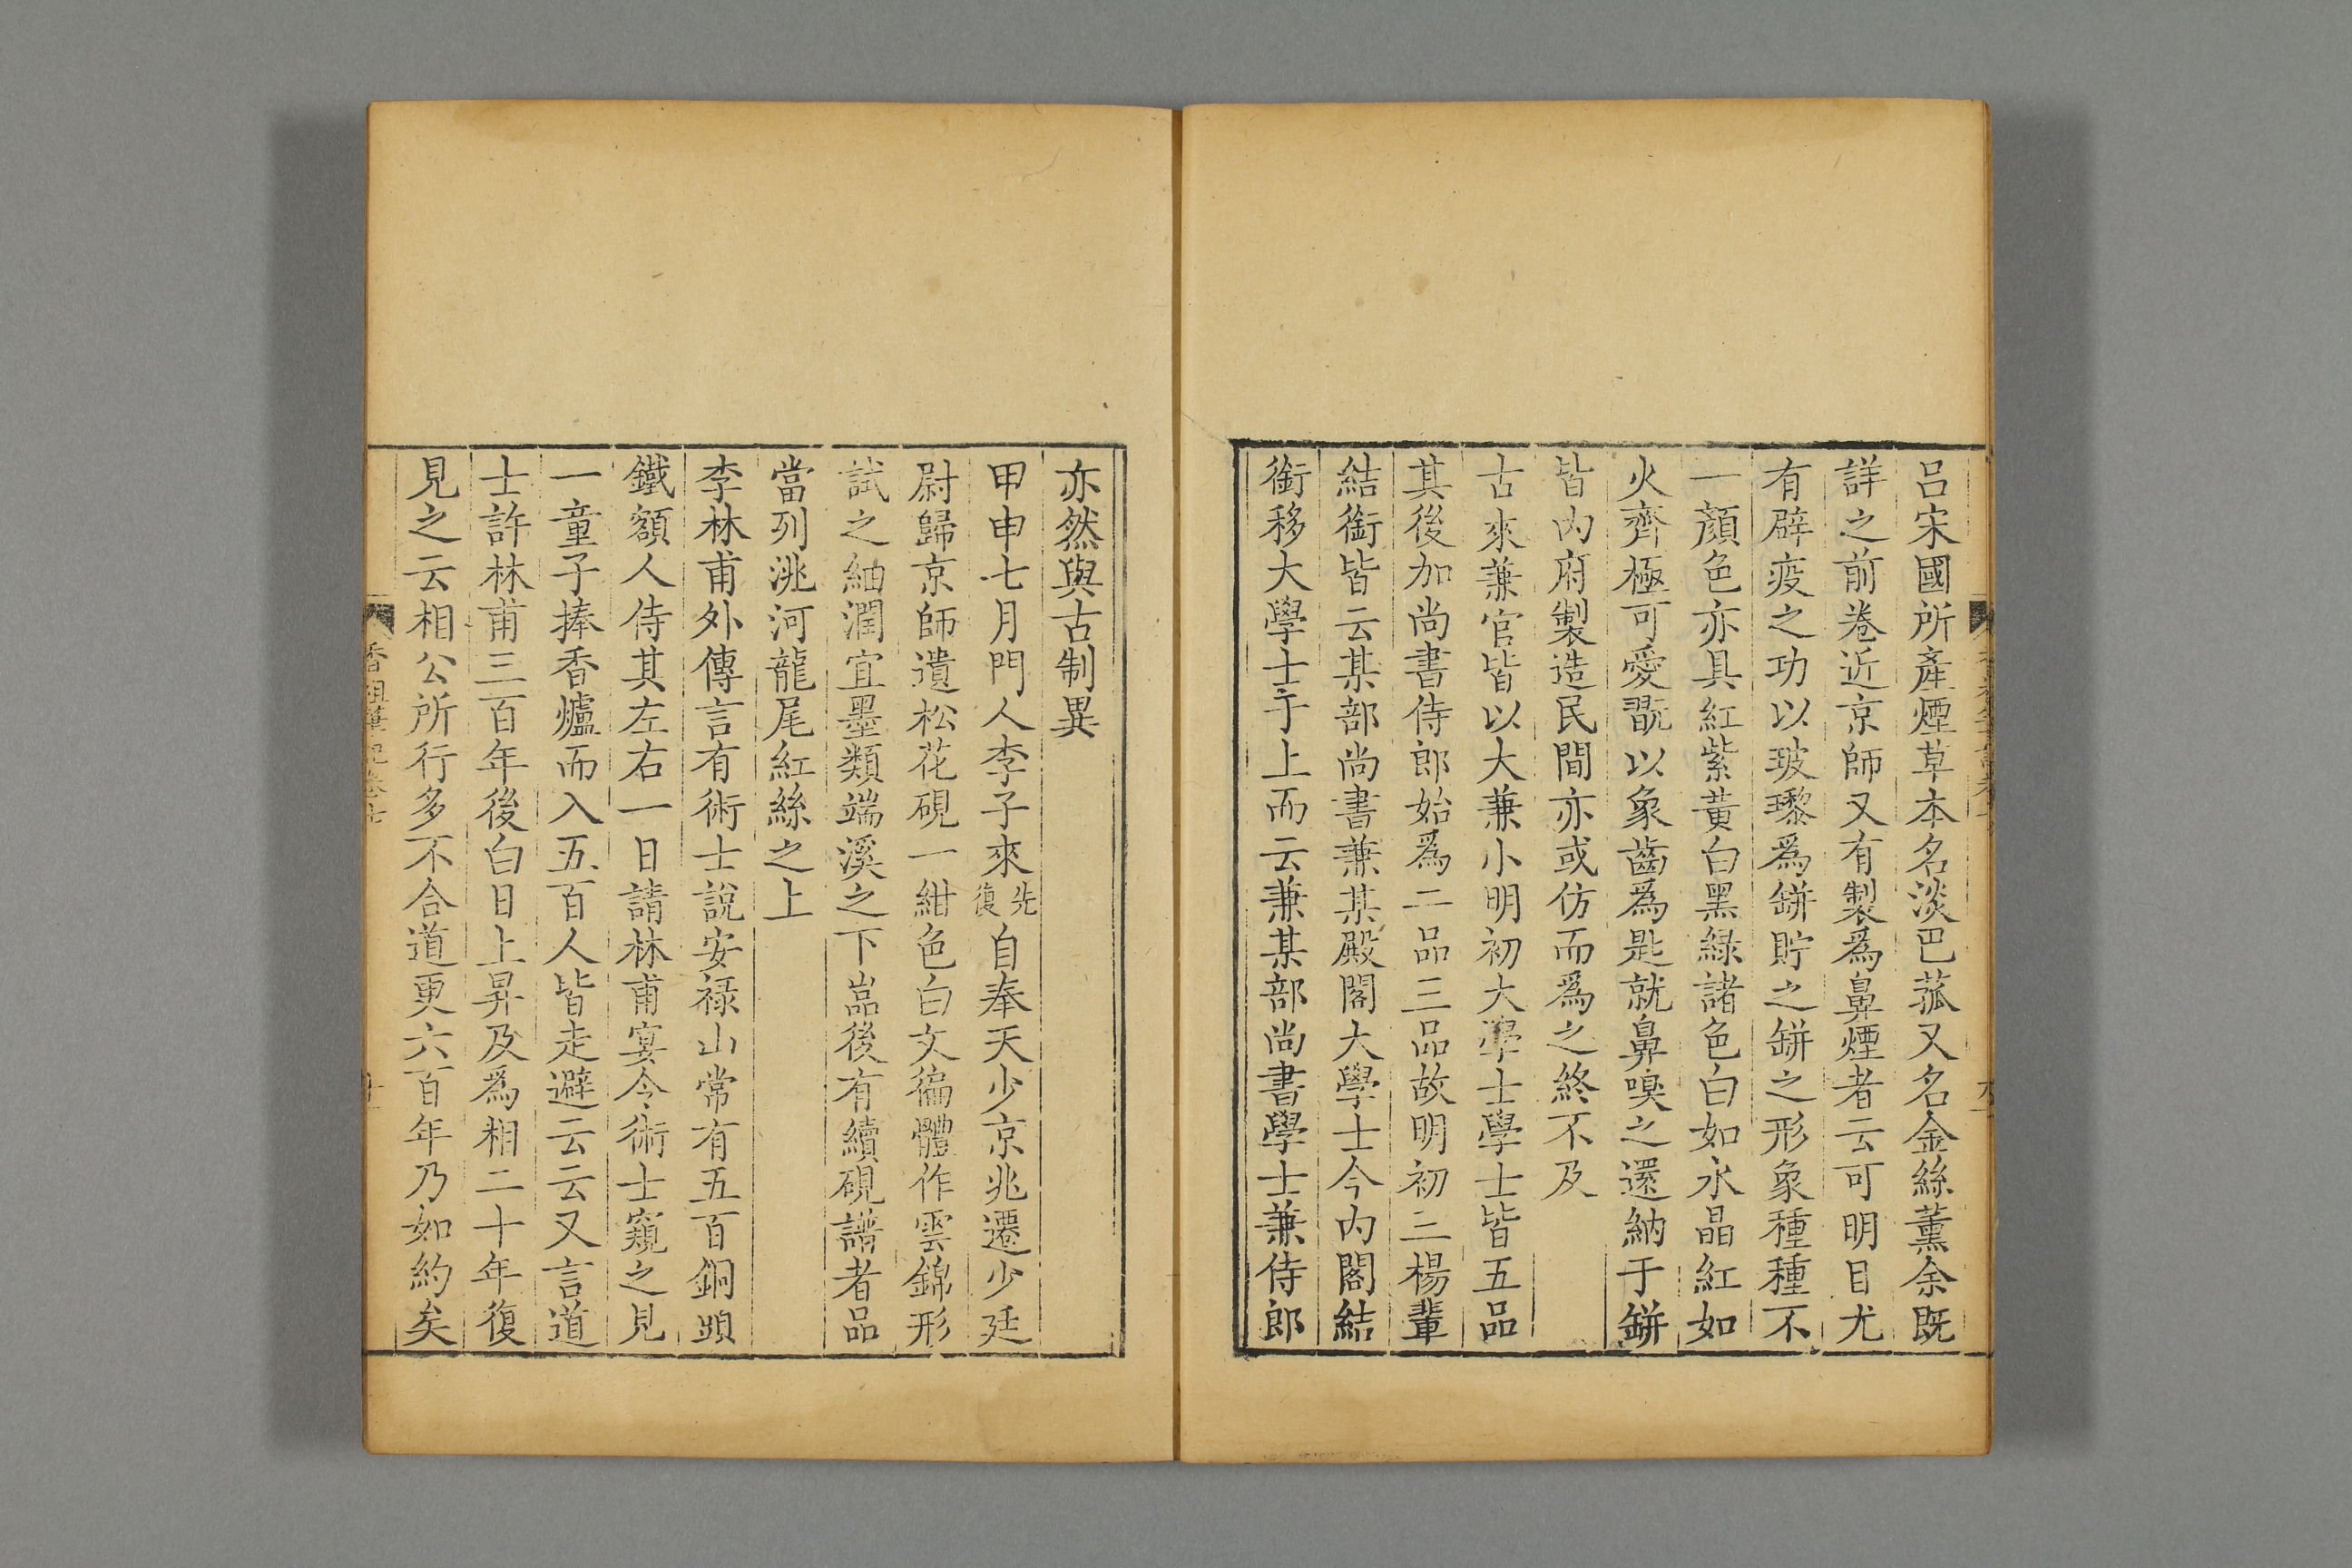 呂宋國所產煙草本名淡巴菰又名金絲薰余既
詳之前卷近京師又有製爲鼻煙者云可明目尤
有辟疫之功以玻瓈爲缾貯之缾之形象種種不
一顏色亦具紅紫黃白黑綠諸色白如水晶紅如
火齊極可愛翫以象齒爲匙就鼻嗅之還納于缾
皆內府製造民間亦或仿而爲之終不及
古來兼官皆以大兼小明初大學士學士皆五品
其後加尚書侍郎始爲二品三品故明初三楊輩
結銜皆云某部尚書兼某殿閣大學士今內閣結
銜移大學士于上而云兼某部尚書學士兼侍郎
亦然與古制異
甲申七月門人李子來先復自奉天少京兆遷少廷
尉歸京師遺松花硯一紺色白文徧體作雲錦形
試之細潤宜墨類端溪之下嵓後有續硯譜者品
當列洮河龍尾紅絲之上
李林甫外傳言有術士說安祿山常有五百銅頭
鐵額人侍其左右一日請林甫宴令術士窺之見
一童子捧香爐而入五百人皆走避云云又言道
士許林甫三百年後白日上昇及爲相二十年復
見之云相公所行多不合道更六百年乃如約矣
香祖筆記卷七